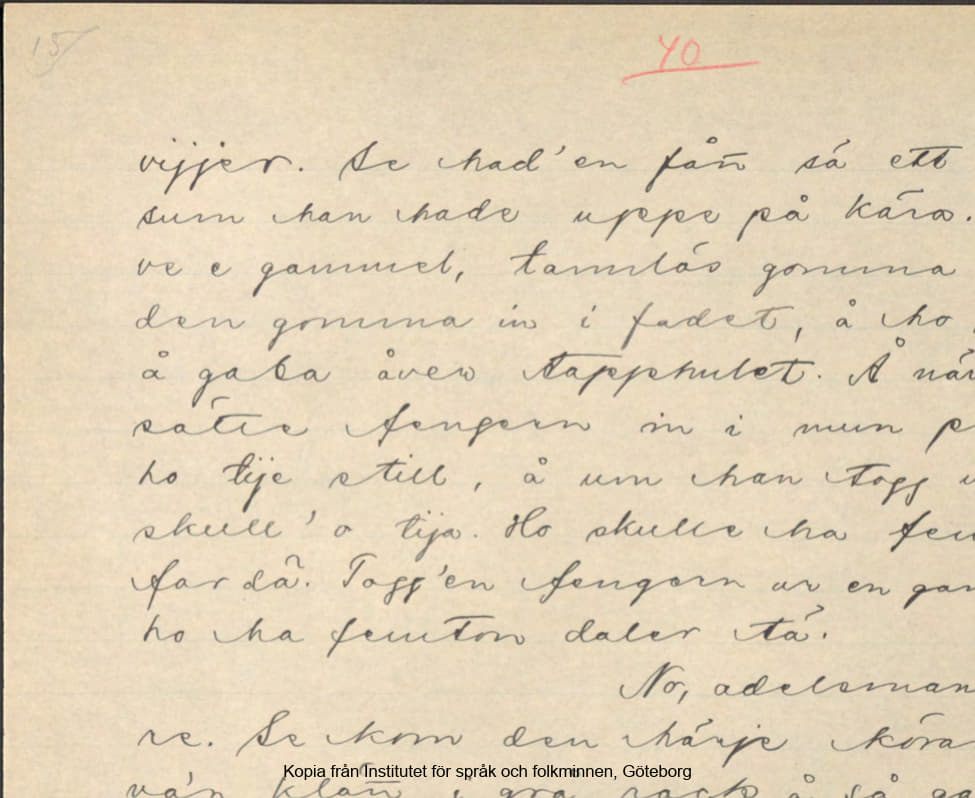 15
40
vijjer. Se had'en fån så ett
sum han hade uppe på kära.
ve e gammel, tannlös gomma
den gomma in i fadet, å ho
å gaba åver tapphulet. Å när
sätte fengern in i mun p
ho tije still, å um han togg u
skull'o tija. Ho skulle ha fem
far dä. Togg'en fengern ur en gan
ho ha femton daler tä.
No, adelsman
re. Se kom den härje köra
Kopia från Institutet för språk och folkminnen, Göteborg
grå rock å så